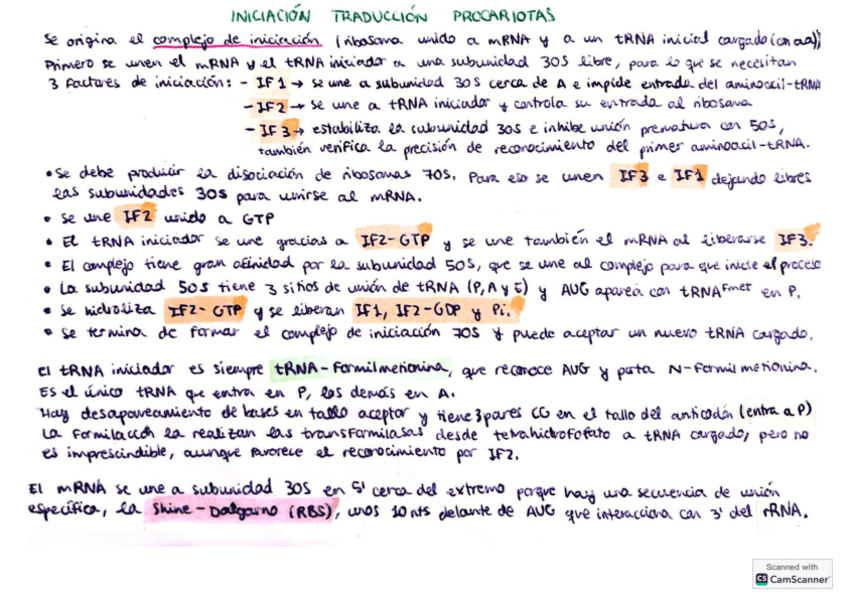 INICIACIÓN TRADUCCIÓN PROCARIOTAS
Se origina el complejo de iniciación (ribosoma unido a mRNA y a un tRNA inicial cargado (con aa))
Primero se unen el mRNA y el tRNA iniciador a una subunidad 30S libre, para lo que se necesitan
3 factores de iniciación: - IF1 → se une a subunidad 30S cerca de A e impide entrada del aminoacil-tRNA
- IF2 → se une a tRNA iniciador y controla su entrada al ribosoma
- IF3 → estabiliza la subunidad 30S e inhibe unión prematura con 50S,
también verifica la precisión de reconocimiento del primer aminoacil-tRNA.
• Se debe producir la disociación de ribosomas 70S. Para eso se unen IF3 e IF1 dejando libres
las subunidades 30S para unirse al mRNA.
• Se une IF2 unido a GTP
• El tRNA iniciador se une gracias a IF2-GTP y se une también el mRNA al liberarse IF3.
• El complejo tiene gran afinidad por la subunidad 50S, que se une al complejo para que inicie el proceso
• La subunidad 50S tiene 3 sitios de unión de tRNA (P, A y E) y AUG aparea con tRNAᶠᵐᵉᵗ en P.
• Se hidroliza IF2-GTP y se liberan IF1, IF2-GDP y Pi.
• Se termina de formar el complejo de iniciación 70S y puede aceptar un nuevo tRNA cargado.
El tRNA iniciador es siempre tRNA-Formilmetionina, que reconoce AUG y porta N-formilmetionina.
Es el único tRNA que entra en P, los demás en A.
Hay desapareamiento de bases en tallo aceptor y tiene 3 pares CG en el tallo del anticodón (entra a P)
La formilación la realizan las transformilasas desde tetrahidrofofato a tRNA cargado, pero no
es imprescindible, aunque favorece el reconocimiento por IF2.
El mRNA se une a subunidad 30S en 5' cerca del extremo porque hay una secuencia de unión
específica, la Shine-Dalgarno (RBS), unos 10 nts delante de AUG que interacciona con 3' del rRNA.
Scanned with
CS CamScanner